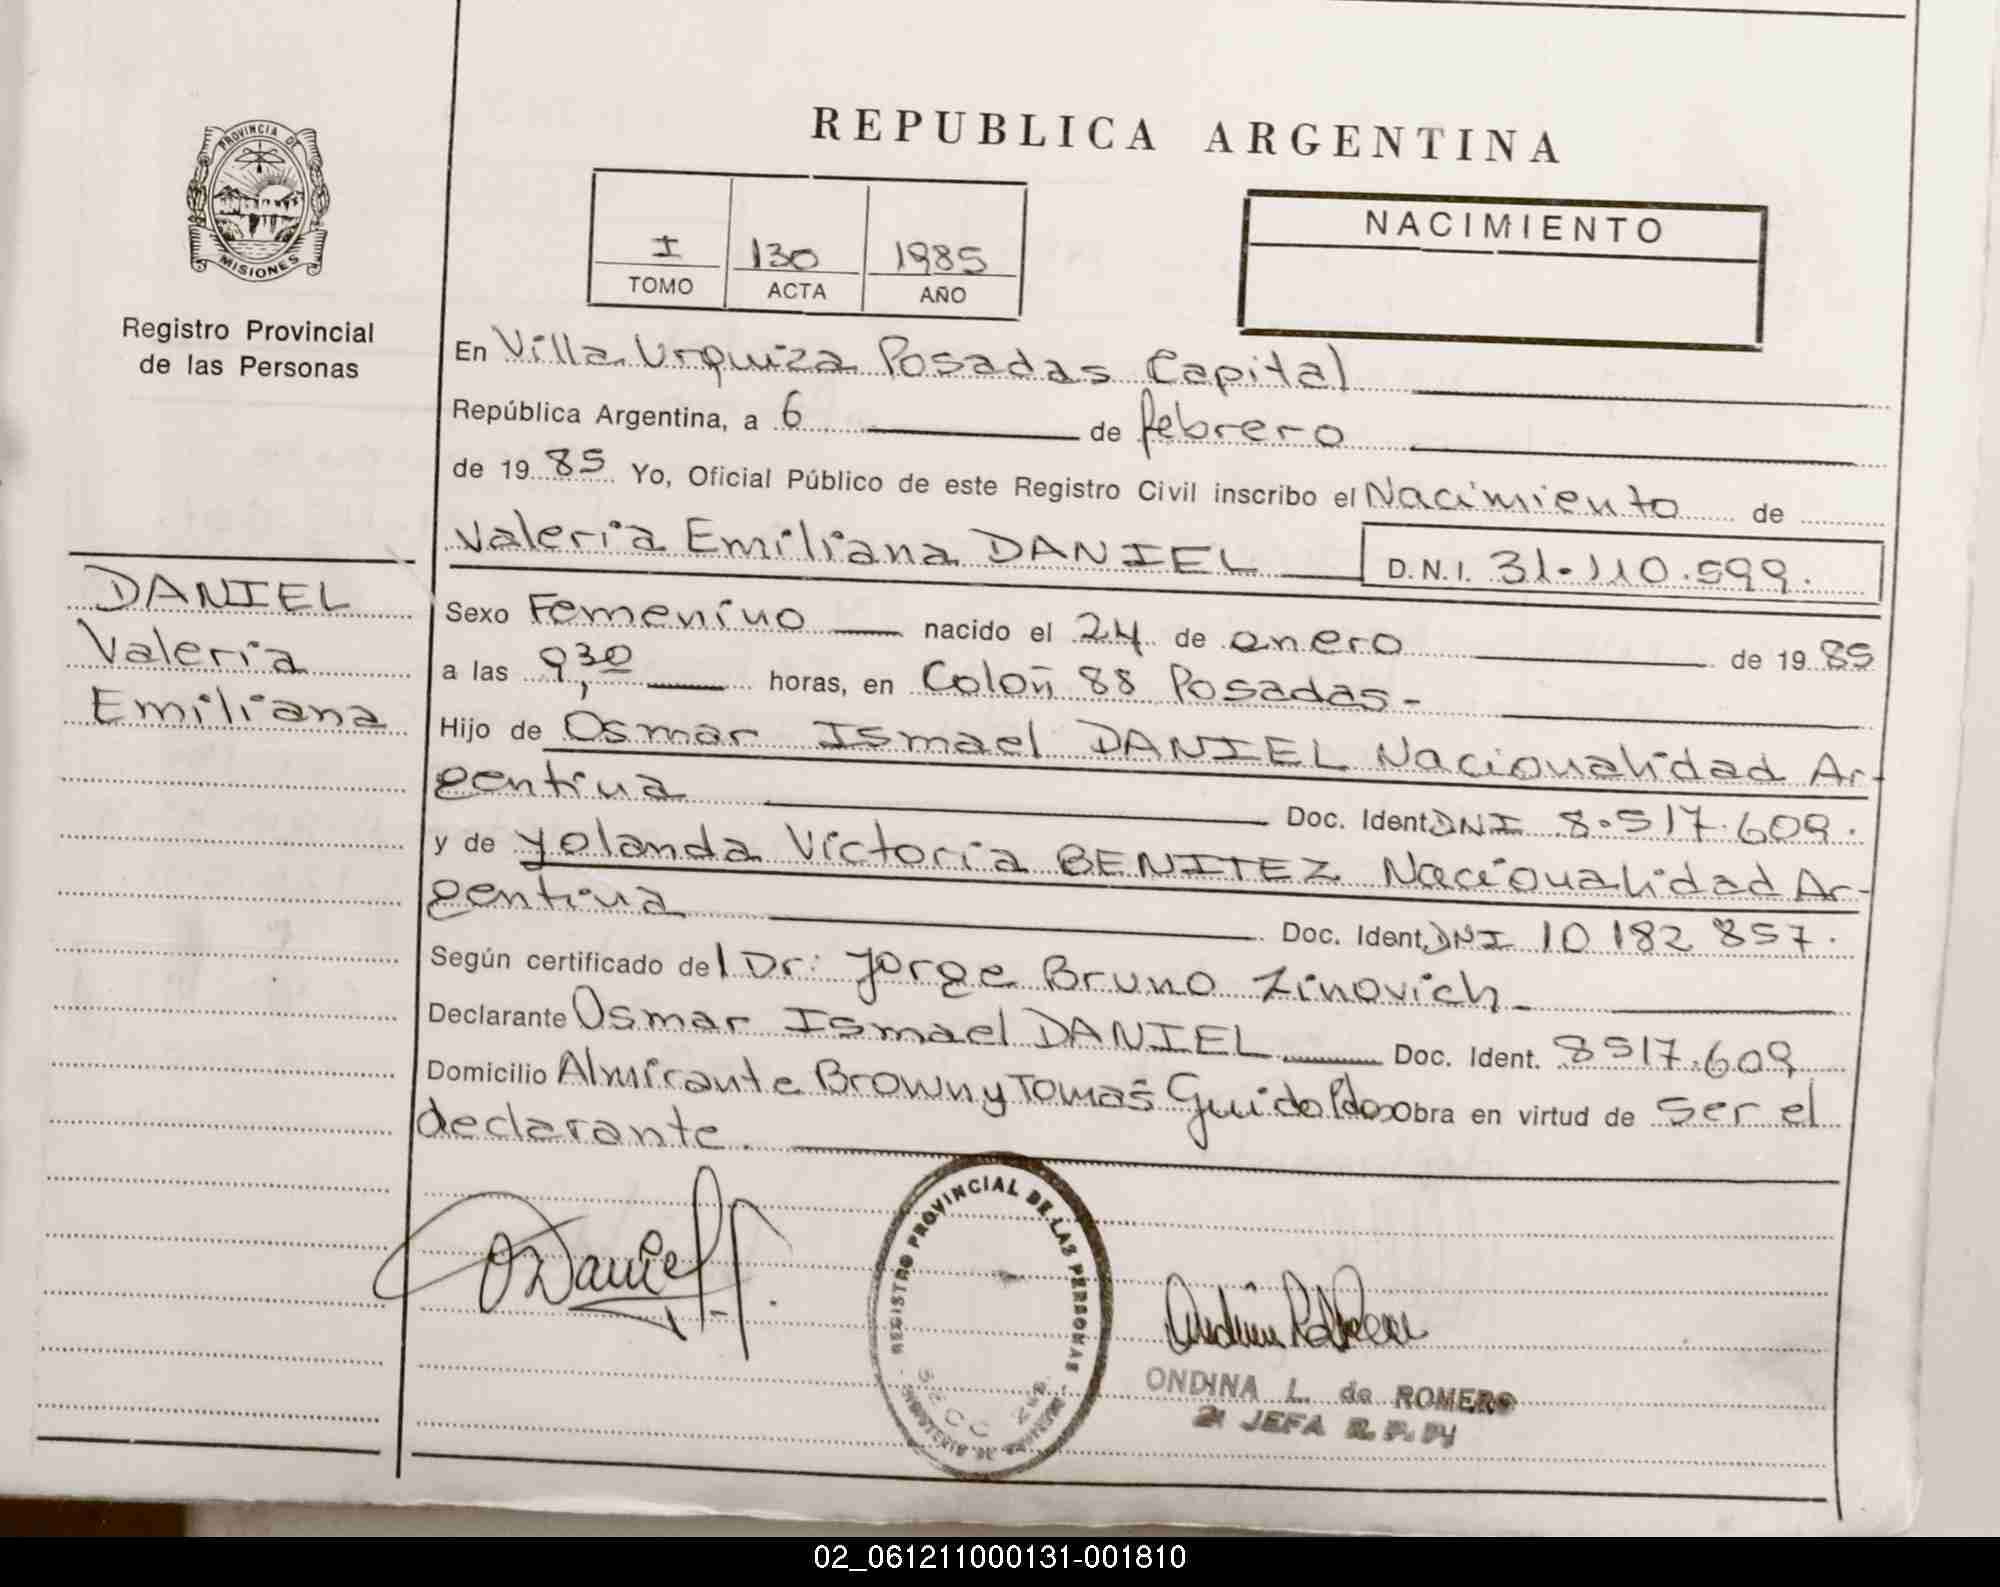 PROVINCIA DE
MISIONES
Registro Provincial
de las Personas
DANIEL
Valeria
Emiliana
REPUBLICA ARGENTINA
I 130 1985
TOMO ACTA AÑO
NACIMIENTO
En Villa Urquiza Posadas Capital
República Argentina, a 6 de febrero
de 1985 Yo, Oficial Público de este Registro Civil inscribo el Nacimiento de
Valeria Emiliana DANIEL D.N.I. 31.110.599.
Sexo Femenino nacido el 24 de enero de 1985
a las 9,30 horas, en Colón 88 Posadas-
Hijo de Osmar Ismael DANIEL Nacionalidad Ar-
gentina Doc. Ident. DNI 8.517.609.
y de Yolanda Victoria BENITEZ Nacionalidad Ar-
gentina Doc. Ident. DNI 10 182 857.
Según certificado del Dr: Jorge Bruno Zinovich-
Declarante Osmar Ismael DANIEL Doc. Ident. 8517.609
Domicilio Almirante Brown y Tomás Guido Pdas Obra en virtud de ser el
declarante.
ODaniel
REGISTRO PROVINCIAL DE LAS PERSONAS
ONDINA L. de ROMERO
JEFA R.P.P.
02_061211000131-001810